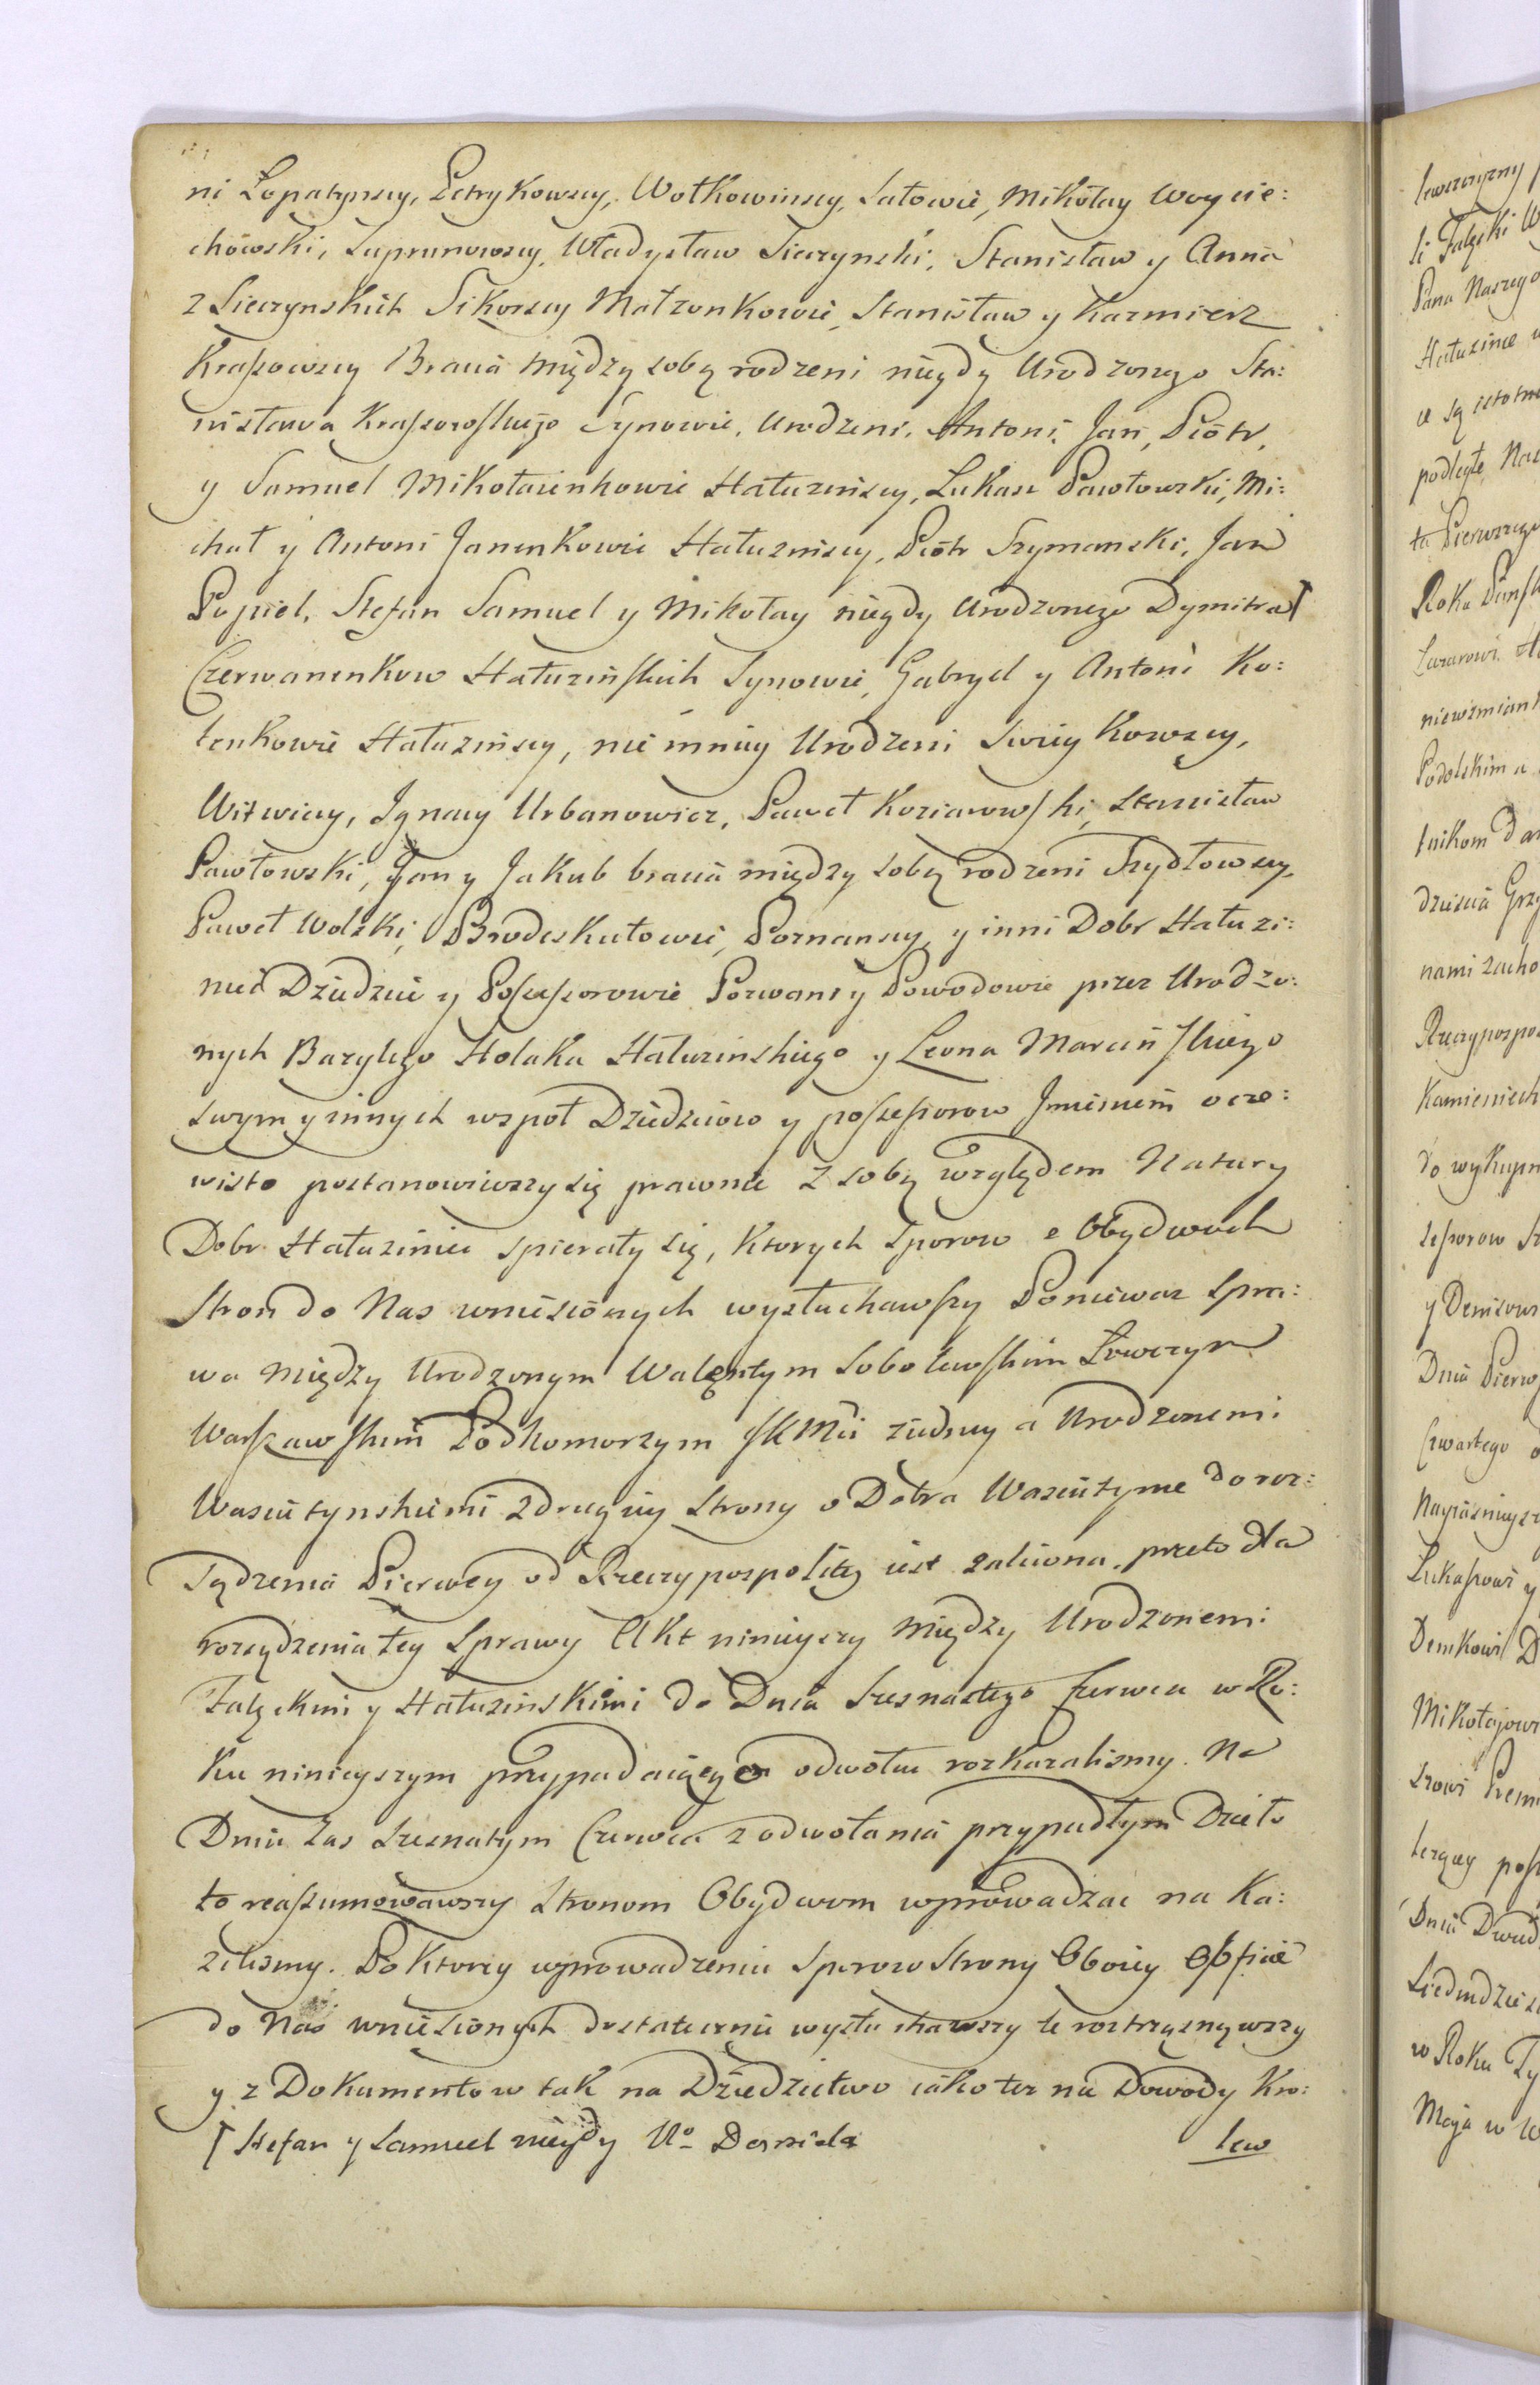 ni Łopatynscy, Petrykowscy, Wołkowinscy, Satowie, Mikołay Woycie:
chowski, Suprunowscy, Władysław Sieczynski, Stanisław y Anna
z Sieczynskich Sikorscy Małzonkowie, Stanisław y Kazmierz
Kraſsowscy Bracia między sobą rodzeni niegdy Urodzonego Sta:
nisława Kraſsowſkiego Synowie, Urodzeni, Antoni, Jan, Piotr,
y Samuel Mikołaienkowie Hałuzinscy, Łukasz Pawłowski, Mi:
chał y Antoni Janenkowie Hałuzinscy, Piotr Szymanski, Jan
Popiel, Stefan Samuel y Mikołay niegdy Urodzonego Dymitra
Czerwanenkow Hałuzińſkich Synowie, Gabryel y Antoni Ko:
tenkowie Hałuzinscy, nie mniey Urodzeni Swieykowscy,
Witwiccy, Ignacy Urbanowicz, Paweł Koziarowſki, Stanisław
Pawłowski, Jan y Jakub bracia między sobą rodzeni Szydłowscy,
Paweł Wolski, Brodeskułowie, Poznanscy, y inni Dobr Hałuzi:
niec Dziedzice y Poſseſsorowie Pozwani y Powodowie przez Urodzo:
nych Bazylego Holaka Hałuzinskiego y Leona Marcińſkiego
swym y innych wspoł Dziedzicow y poſseſsorow Jmieniem oczo:
wisto postanowiwszy się prawnie z sobą względem Natury
Dobr Hałuziniec spierały się, Ktorych sporow z Obydwoch
Stron do Nas wniesionych wysłuchawſzy Poniewaz Spra:
wa między Urodzonym Walentym Sobolewſkim Łowczym
Warſzawſkim Podkomorzym JKMci z iedney a Urodzonemi
Wasiutynskiemi z drugiey Strony o Dobra Wasiutynce do roz:
sądzenia Pierwey od Rzeczypospolitey iest zalicona, przeto dla
rozsądzenia tey Sprawy Akt ninieyszy między Urodzonemi
Załękimi y Hałuzinskimi do Dnia Szesnastego Czerwca w Ro:
ku ninieyszym przypadaiącego odwołać rozkazalismy. Na
Dniu zas Szesnastym Czerwca z odwołania przypadłym Dzieło
to reaſsumowawszy Stronom Obydwom wprowadzac na Ka:
zalismy. Po Ktorey wprowadzeniu Sporow Strony Oboiey
do Nas wniesionych dostatecznie wysłuchawszy te roztrząsnąwszy
y z Dokumentow tak na Dziedzictwo iako tez na Dowody Kro:
Stefan y Samuel niegdy Uo Daniela
lew